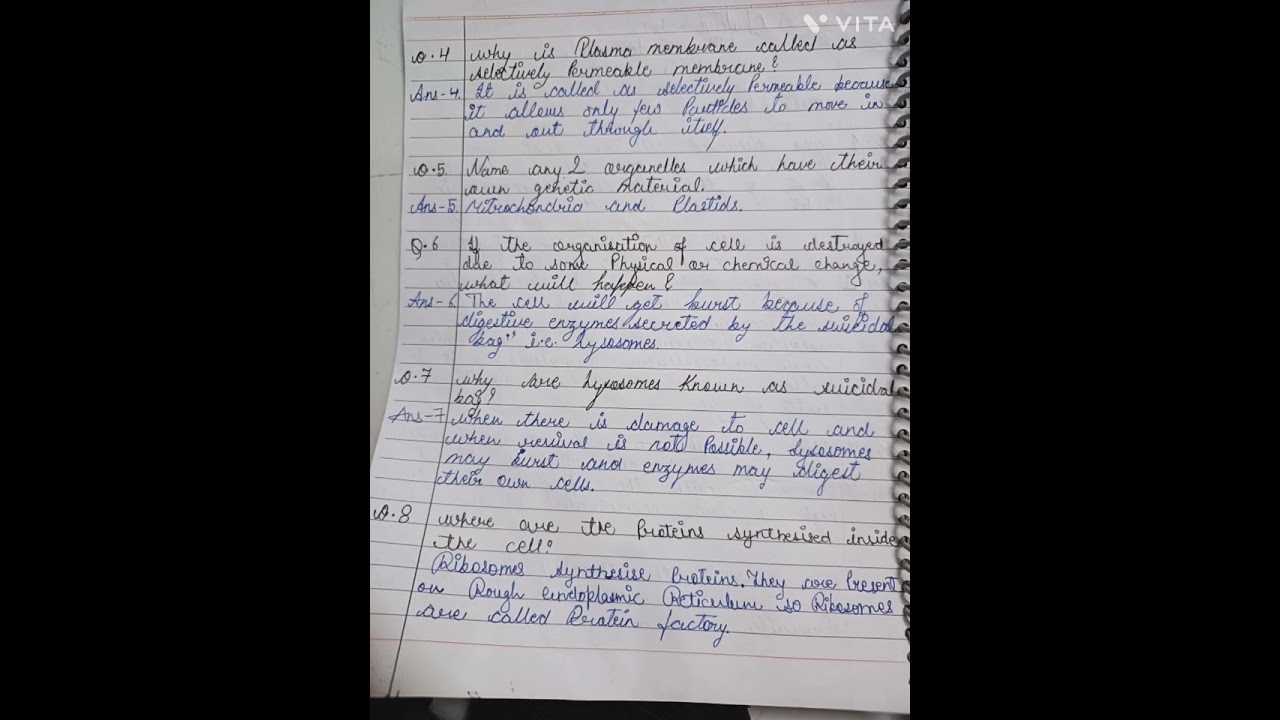 VITA
Q.4 Why is Plasma membrane called as
selectively Permeable membrane?
Ans-4. It is called as selectively Permeable because
it allows only few Particles to move in
and out through itself.
Q.5. Name any 2 organelles which have their
own genetic material.
Ans-5. Mitrochondria and Plastids.
Q.6 If the organisation of cell is destroyed
due to some Physical or chemical change,
what will happen?
Ans-6. The cell will get burst because of
digestive enzymes secreted by the suicidal
bag" i.e. Lysosomes.
Q.7 Why are Lysosomes Known as suicidal
bag?
Ans-7 When there is damage to cell and
when revival is not Possible, Lysosomes
may burst and enzymes may digest
their own cells.
Q.8 Where are the Proteins synthesised inside
the cell?
Ribosomes synthesise Proteins. They are Present
on Rough endoplasmic Reticulum so Ribosomes
are called Protein factory.